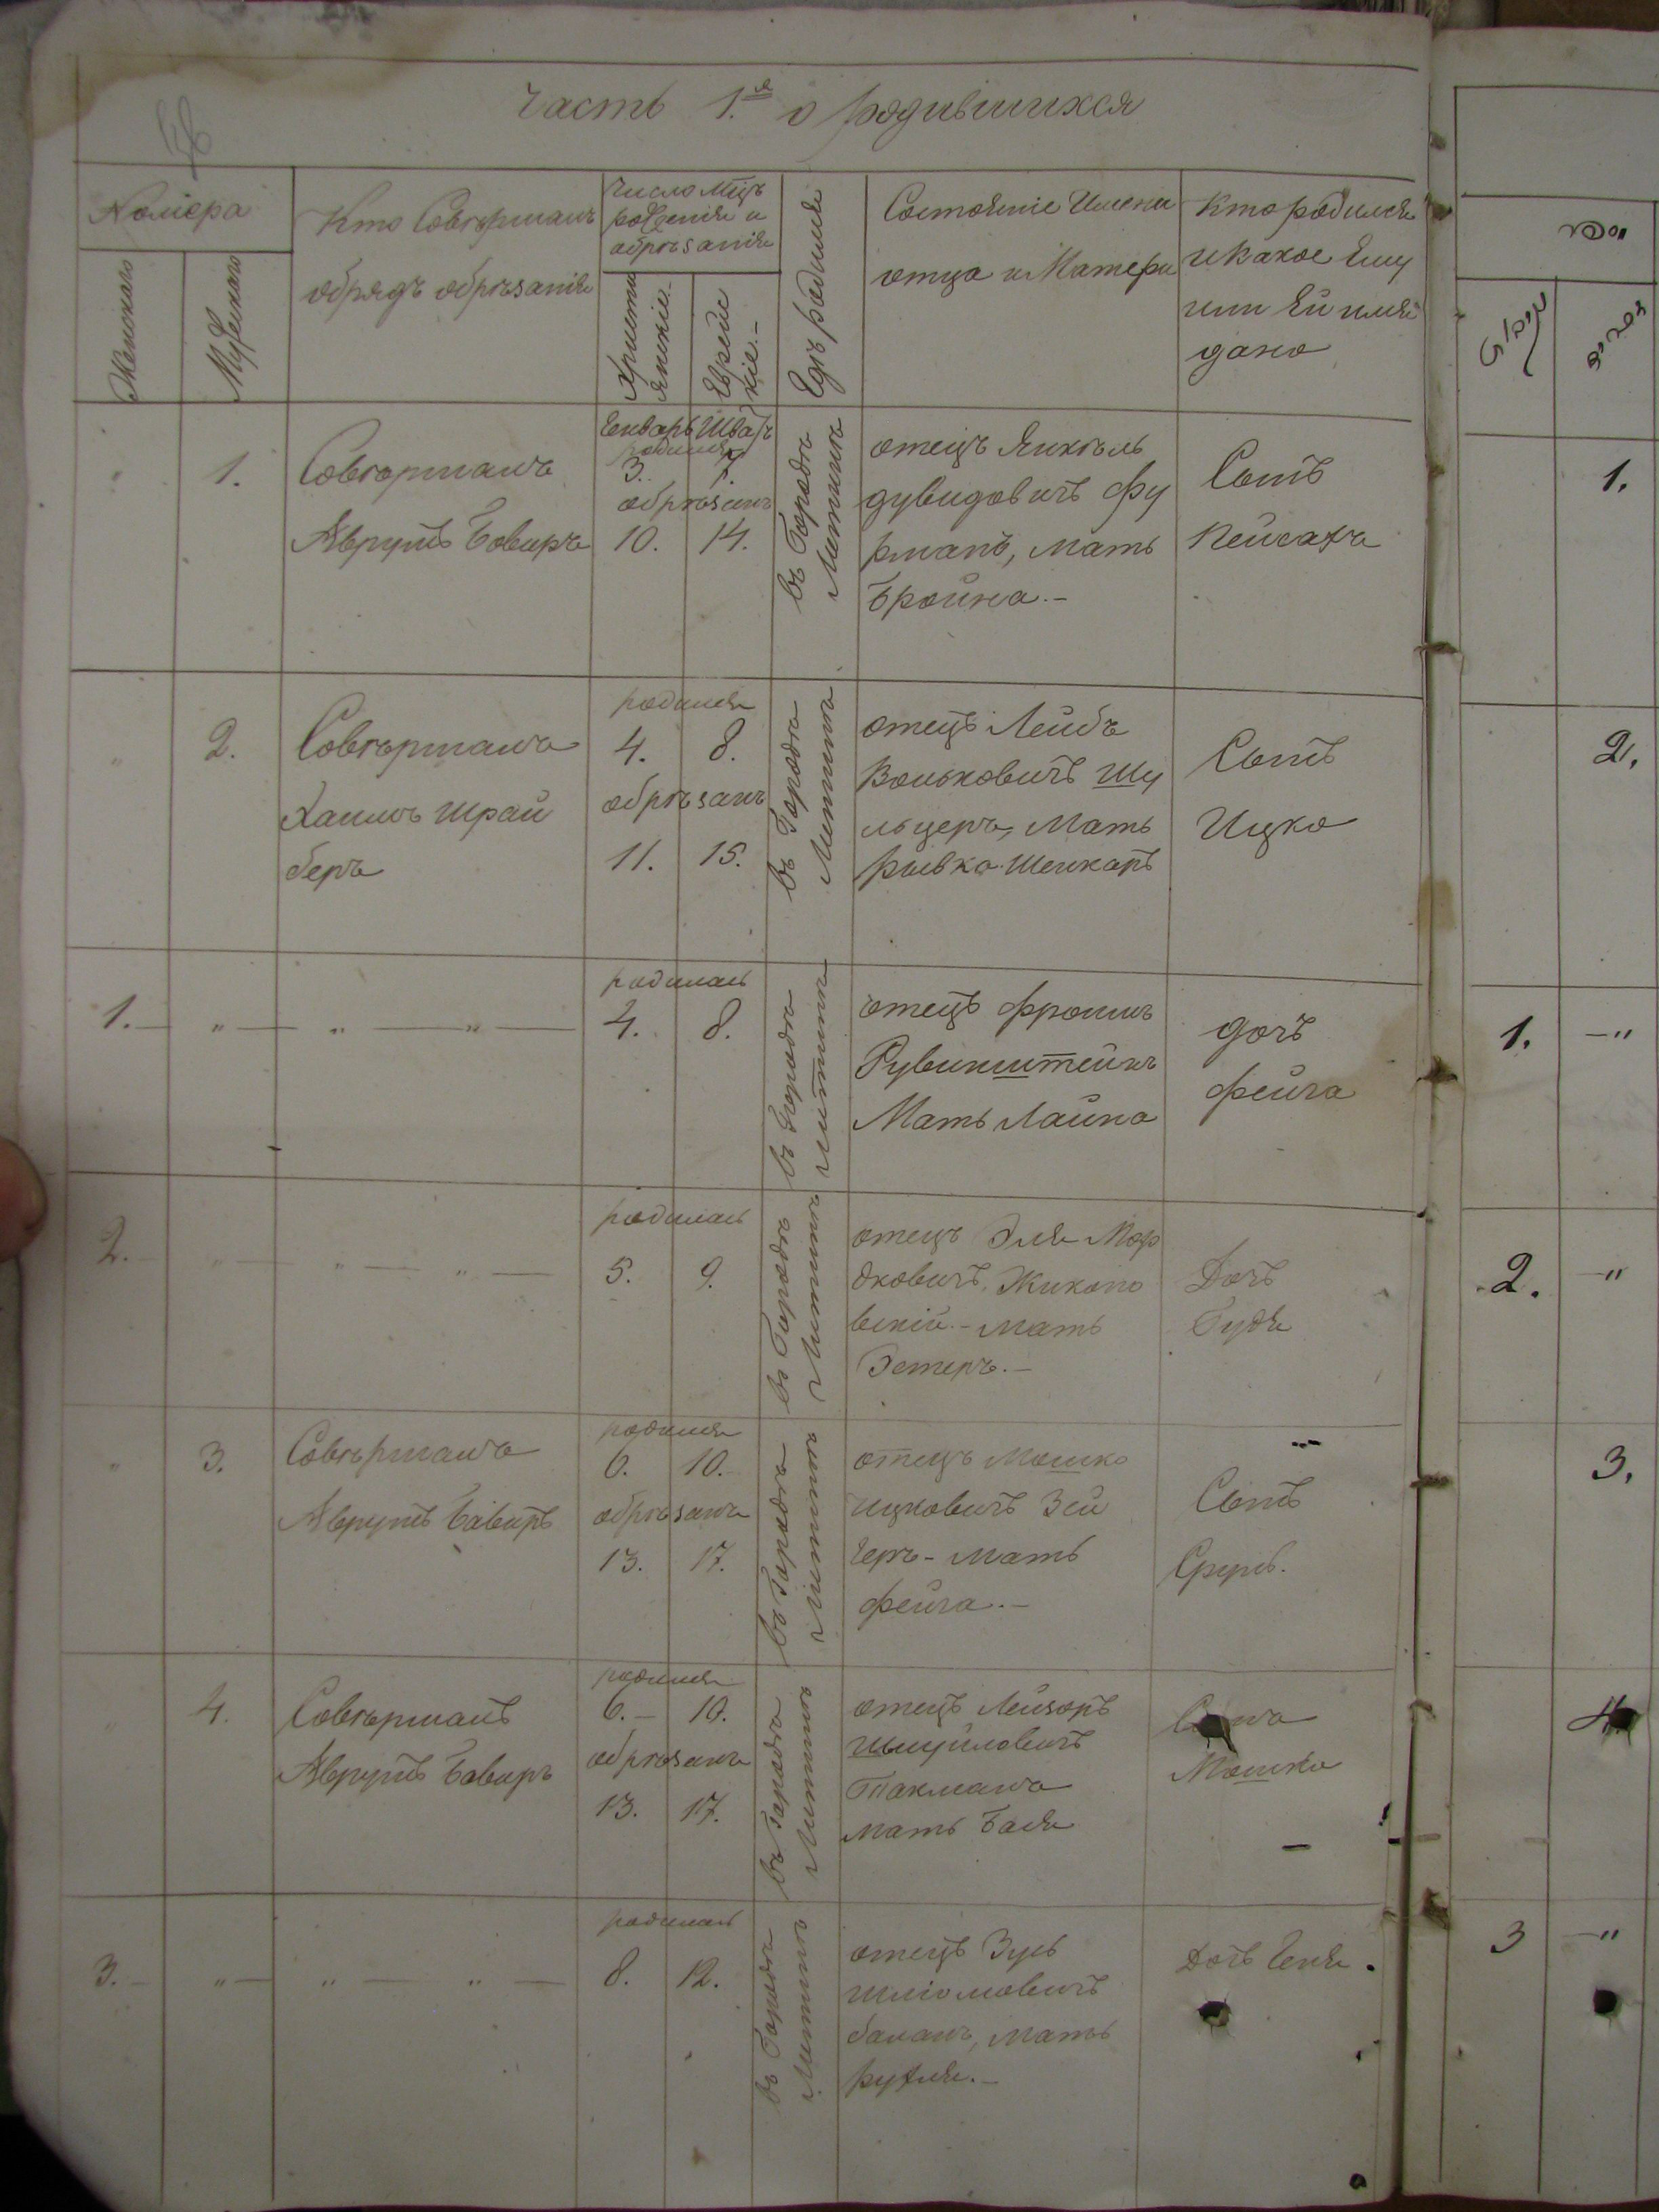 Часть 1.я о родившихся
Номера
Женскаго
Мужскаго
Кто Совѣршалъ
обрядъ обрѣзанія
Число Мцъ
рожденія и
обрѣзанія
Христи
янскіе.-
Еврейс
кіе.-
Гдѣ родился
Состояніе Имена
отца и Матери
Кто родился
и какое Ему
или Ей имя
дано
" 1.
Совѣршалъ
Аврумъ Бовиръ
Генварь Шватъ
родился
3. 7.
обрѣзанъ
10. 14.
въ Городѣ
Литинѣ
отецъ Янкѣль
дувидовичъ Фу
рманъ, мать
Бройна.-
Сынъ
Пейсахъ
" 2.
Совѣршалъ
Хаимъ Шрай
беръ
родился
4. 8.
обрѣзанъ
11. 15.
въ Городѣ
Литинѣ
отецъ Лейбъ
Вольковичъ Шу
льцеръ, Мать
рывка
Сынъ
Ицко
1. " " "
родилась
4. 8.
въ Городѣ
Литинѣ
отецъ Фроимъ
Рувинштейнъ
Мать Лайна
дочь
фейга
2. " " "
родилась
5. 9.
въ Городѣ
Литинѣ
отецъ Эля Мор
дковичъ
вскій.- мать
Эстеръ.-
Дочь
" 3.
Совѣршалъ
Аврумъ Бовиръ
родился
6. 10.
обрѣзанъ
13. 17.
въ Городѣ
Литинѣ
отецъ Мошко
ицковичъ Зей
геръ - мать
фейга.-
Сынъ
Сруль.
" 4.
Совѣршалъ
Аврумъ Бовиръ
родился
6.- 10.
обрѣзанъ
13. 17.
въ Городѣ
Литинѣ
отецъ Лейзоръ
шмуйловичъ
Токманъ
мать Бася
Сынъ
Мошко
3. " " "
родилась
8. 12.
въ Городѣ
Литинѣ
отецъ Зусь
шліомовичъ
мать
рухля.-
Дочь Геня.
1.
2.
1. "
2. "
3.
4.
3 "